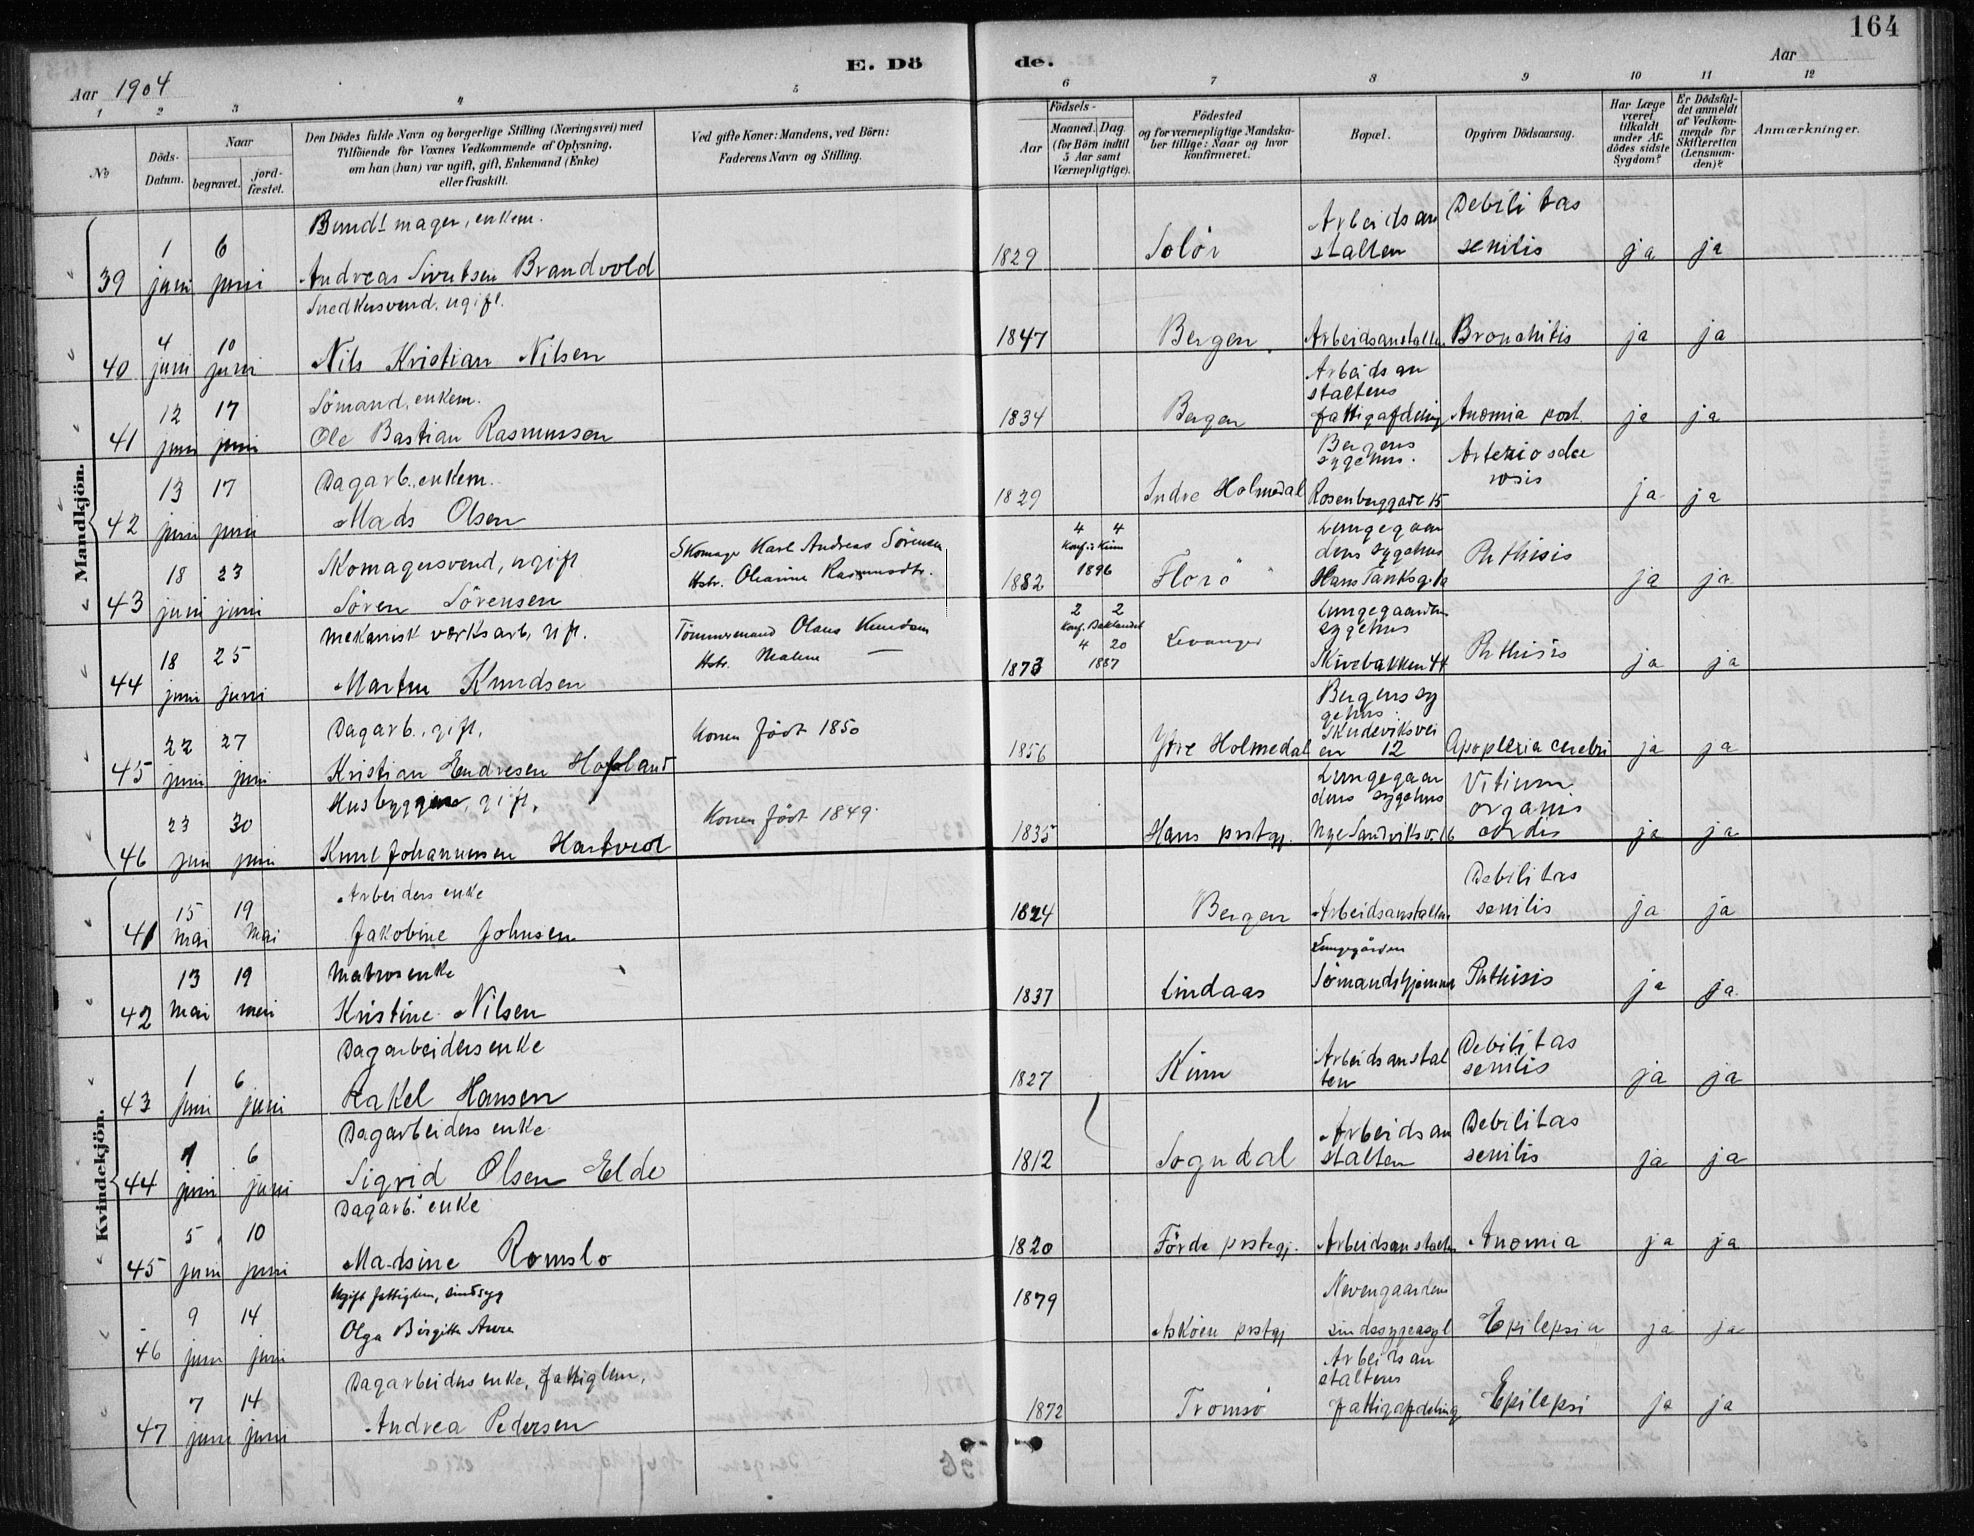 164
E. Dö de.
Aar 1904
Aar
1 2 3 4 5 6 7 8 9 10 11 12
No
Döds-Datum.
Naar
begravet.
jord-fæstet.
Den Dödes fulde Navn og borgerlige Stilling (Næringsvei) med
Tilföiende for Voxnes Vedkommende af Oplysning,
om han (hun) var ugift, gift, Enkemand (Enke)
eller fraskilt.
Ved gifte Koner: Mandens, ved Börn:
Faderens Navn og Stilling.
Födsels-
Aar
Maaned. Dag.
(for Börn indtil
5 Aar samt
Værnepligtige).
Födested
og for værnepligtige Mandska-
ber tillige: Naar og hvor
konfirmeret.
Bopæl.
Opgiven Dödsaarsag.
Har Læge
været
tilkaldt
under Af-
dödes sidste
Sygdom?
Er Dödsfal-
det anmeldt
af Vedkom-
mende for
Skifteretten
(Lensman-
den)?
Anmærkninger.
Mandkjön.
Bundtmager, enkem.
39 1 juni 6 juni Andreas Sivertsen Brandvold 1829 Solör Arbeidsanstalten Debilitas senilis ja ja
Snedkersvend, ugift.
40 4 juni 10 juni Nils Kristian Nilsen 1847 Bergen Arbeidsanstalten Bronchitis ja ja
Sömand, enkem.
41 12 juni 17 juni Ole Bastian Rasmussen 1834 Bergen Arbeidsanstaltens fattigafdeling Anæmia post. ja ja
Dagarb., enkem.
42 13 juni 17 juni Mads Olsen 1829 Indre Holmedal Bergens sygehus. Rosenberggade 15 Arteriosclerosis ja ja
Skomagersvend, ugift
43 18 juni 23 juni Sören Sörensen Skomager Karl Andreas Sörensen Hstr. Oleanne Rasmusdtr. 1882 4 4 Konf. i Kinn 1896 Florö Lungegaardens sygehus Hans Tanksgd Phthisis ja ja
Mekanisk værksarb., ugift.
44 18 juni 25 juni Martin Knudsen Tömmermand Olaus Knudsen Hstr. Malene — 1873 2 2 Konf. Baklandet 4 20 1887 Levanger Lungegaardens sygehus Skivebakken 44 Phthisis ja ja
Dagarb., gift,
45 22 juni 27 juni Kristian Endresen Hofland Konen födt 1850 1856 Ytre Holmedal Bergens sygehus. Skudeviksveien 12 Apoplexia cerebri ja ja
Husbygger, gift,
46 23 juni 30 juni Knut Johannessen Hartveit Konen födt 1849. 1835 Hans prstgj. Nye Sandviksv. 16 Vitium organis cordis ja ja
Kvindekjön.
Arbeiders enke
41 15 mai 19 mai Jakobine Johnsen 1824 Bergen Arbeidsanstalten Debilitas senilis ja ja
Matrosenke
42 13 mai 19 mai Kristine Nilsen 1837 Lindaas Lungegården Sömandshjemmet Phthisis ja ja
Dagarbeidersenke
43 1 juni 6 juni Rakel Hansen 1827 Kinn Arbeidsanstalten Debilitas senilis ja ja
Dagarbeiders enke
44 1 juni 6 juni Sigrid Olsen Elde 1812 Sogndal Arbeidsanstalten Debilitas senilis ja ja
Dagarb. enke
45 5 juni 10 juni Madsine Romslo 1820 Förde prstegj. Arbeidsanstalten Anæmia ja ja
Ugift fattiglem, sindssyg
46 9 juni 14 juni Olga Birgitte 1879 Asköen prstgj Nevengaardens sindssygeasyl Epilepsia ja ja
Dagarbeiders enke, fattiglem,
47 7 juni 14 juni Andrea Pedersen 1872 Tromsö Arbeidsanstaltens fattigafdeling Epilepsi ja ja